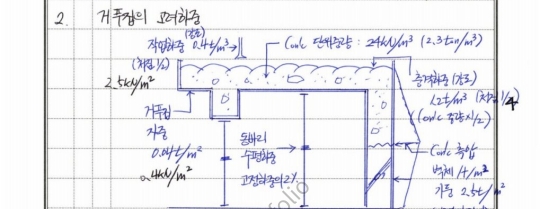 2. 거푸집의 고려하중
작업하중 (강도) 0.4t/m³
(처짐 1/2)
2.5kN/m²
Conc 단위중량 : 24kN/m³ (2.3ton/m³)
충격하중 (강도)
1.2t/m³ (처짐 1/4)
(conc 중량시/2)
거푸집
자중
0.04t/m²
0.4kN/m²
동바리
수평하중
고정하중의 2%
Conc 측압
벽체 1t/m²
기둥 2.5t/m²
folio